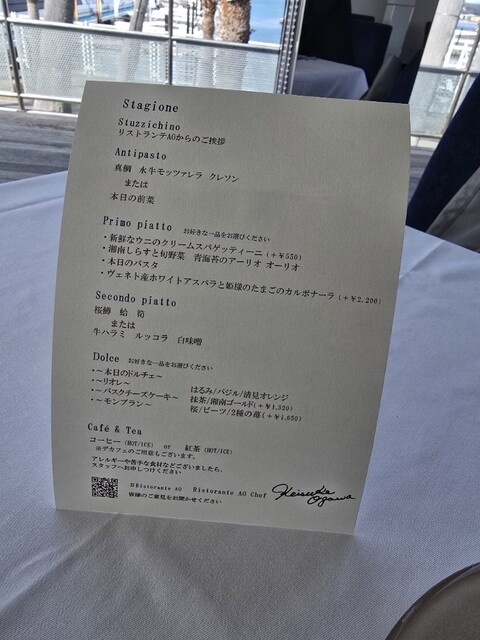 Stagione
Stuzzichino
リストランテAOからのご挨拶
Antipasto
真鯛 水牛モッツァレラ クレソン
または
本日の前菜
Primo piatto お好きな一品をお選びください
・新鮮なウニのクリームスパゲッティーニ(+¥550)
・湘南しらすと旬野菜 青海苔のアーリオ オーリオ
・本日のパスタ
・ヴェネト産ホワイトアスパラと姫様のたまごのカルボナーラ(+¥2,200)
Secondo piatto
桜鱒 蛤 筍
または
牛ハラミ ルッコラ 白味噌
Dolce お好きな一品をお選びください
・〜本日のドルチェ〜
・〜リオレ〜 はるみ/バジル/清見オレンジ
・〜バスクチーズケーキ〜 抹茶/湘南ゴールド(+¥1,320)
・〜モンブラン〜 桜/ビーツ/2種の苺(+¥1,650)
Café & Tea
コーヒー(HOT/ICE) or 紅茶(HOT/ICE)
※デカフェのご用意もございます。
アレルギーや苦手な食材などございましたら、
スタッフへお申しつけください
Ristorante AO Ristorante AO Chef Keisuke Ogawa
皆様のご意見をお聞かせください